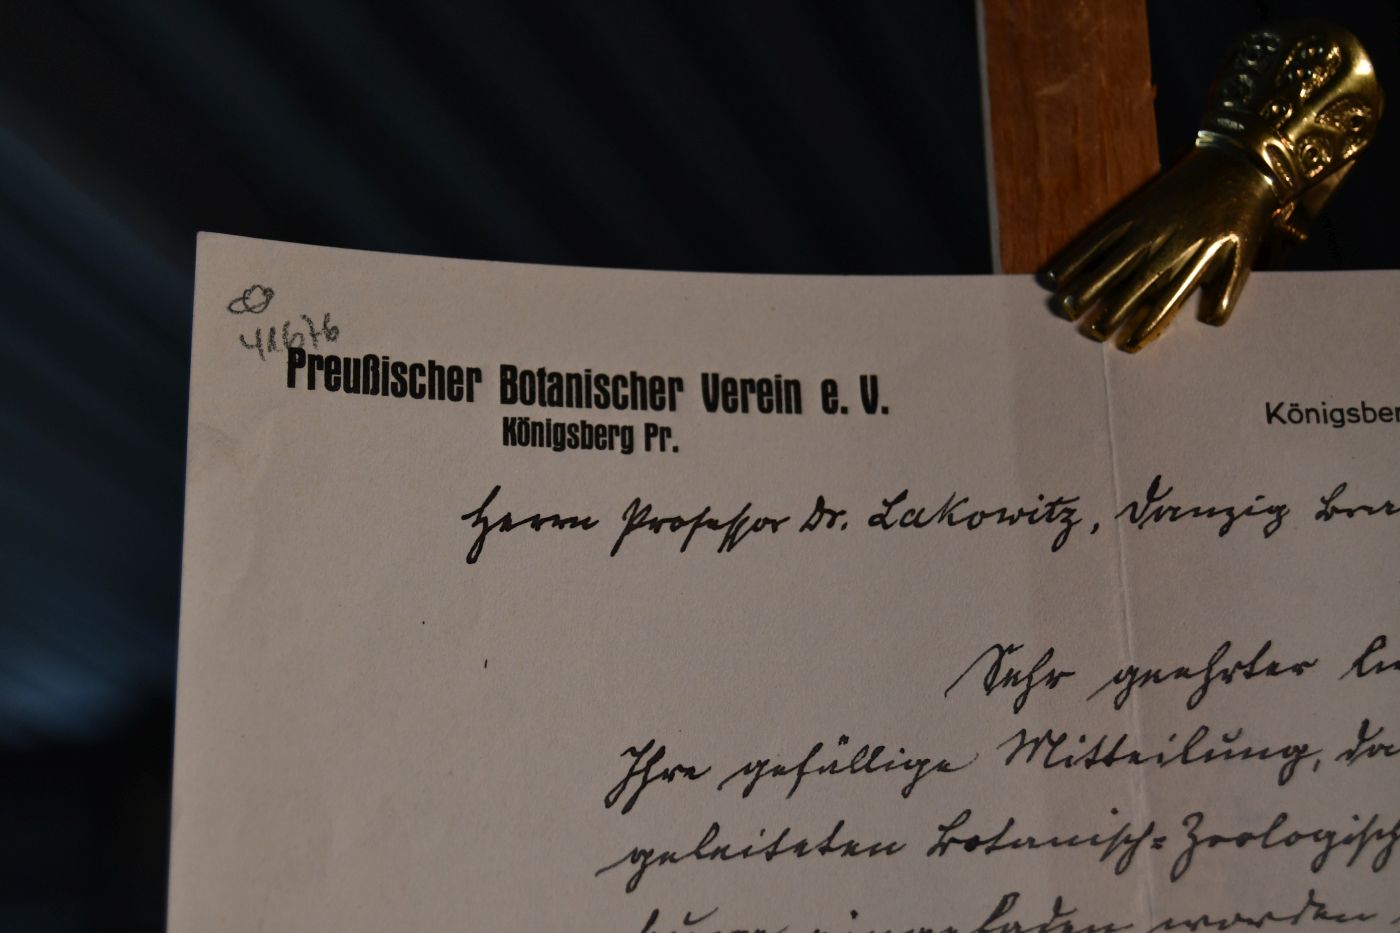 41676
Preußischer Botanischer Verein e. V.
Königsberg Pr.
Königsber
Herrn Professor Dr. Lakowitz, Danzig
Sehr geehrter
Ihre gefällige Mitteilung, da
geleiteten Botanisch-Zoologisch
eingeladen worden